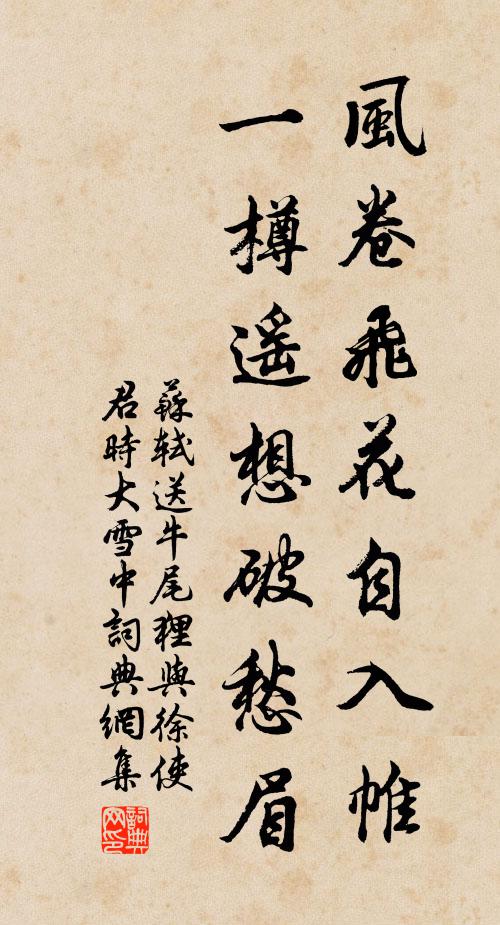 風卷飛花自入帷
一樽遥想破愁眉
蘇軾送牛尾狸與徐使
君時大雪中詞典網集
詞典
网印